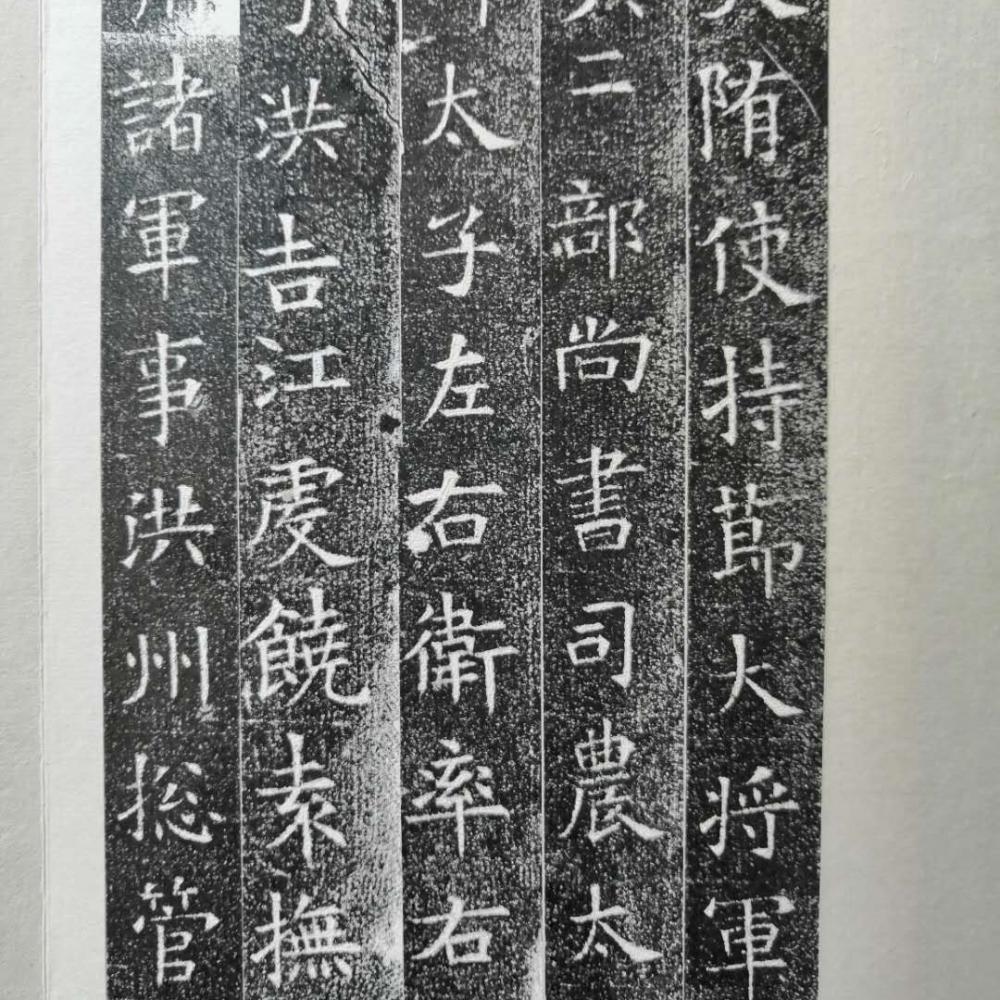 隋使持莭大将軍
二部尚書司農太
太子左右衛率右
洪吉江虔饒袁撫
諸軍事洪州捴管